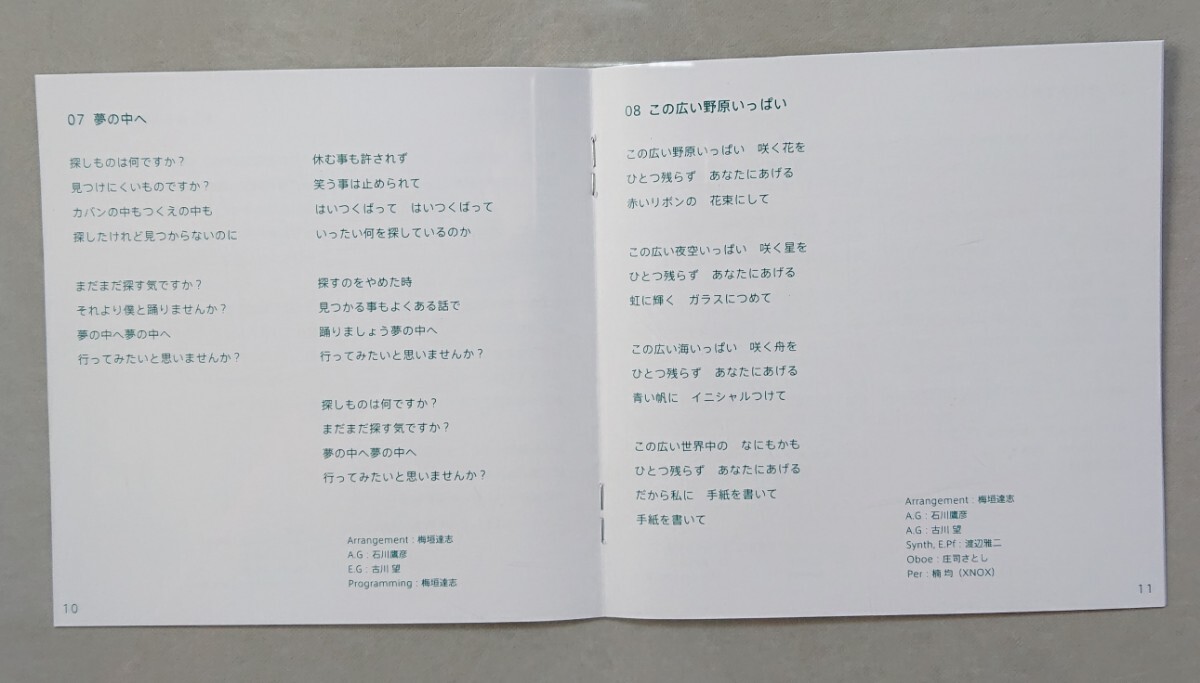 07 夢の中へ
探しものは何ですか？
見つけにくいものですか？
カバンの中もつくえの中も
探したけれど見つからないのに
まだまだ探す気ですか？
それより僕と踊りませんか？
夢の中へ夢の中へ
行ってみたいと思いませんか？
休む事も許されず
笑う事は止められて
はいつくばって　はいつくばって
いったい何を探しているのか
探すのをやめた時
見つかる事もよくある話で
踊りましょう夢の中へ
行ってみたいと思いませんか？
探しものは何ですか？
まだまだ探す気ですか？
夢の中へ夢の中へ
行ってみたいと思いませんか？
Arrangement : 梅垣達志
A.G : 石川鷹彦
E.G : 古川 望
Programming : 梅垣達志
10
08 この広い野原いっぱい
この広い野原いっぱい　咲く花を
ひとつ残らず　あなたにあげる
赤いリボンの　花束にして
この広い夜空いっぱい　咲く星を
ひとつ残らず　あなたにあげる
虹に輝く　ガラスにつめて
この広い海いっぱい　咲く舟を
ひとつ残らず　あなたにあげる
青い帆に　イニシャルつけて
この広い世界中の　なにもかも
ひとつ残らず　あなたにあげる
だから私に　手紙を書いて
手紙を書いて
Arrangement : 梅垣達志
A.G : 石川鷹彦
A.G : 古川 望
Synth, E.Pf : 渡辺雅二
Oboe : 庄司さとし
Per : 楠 均（XNOX）
11